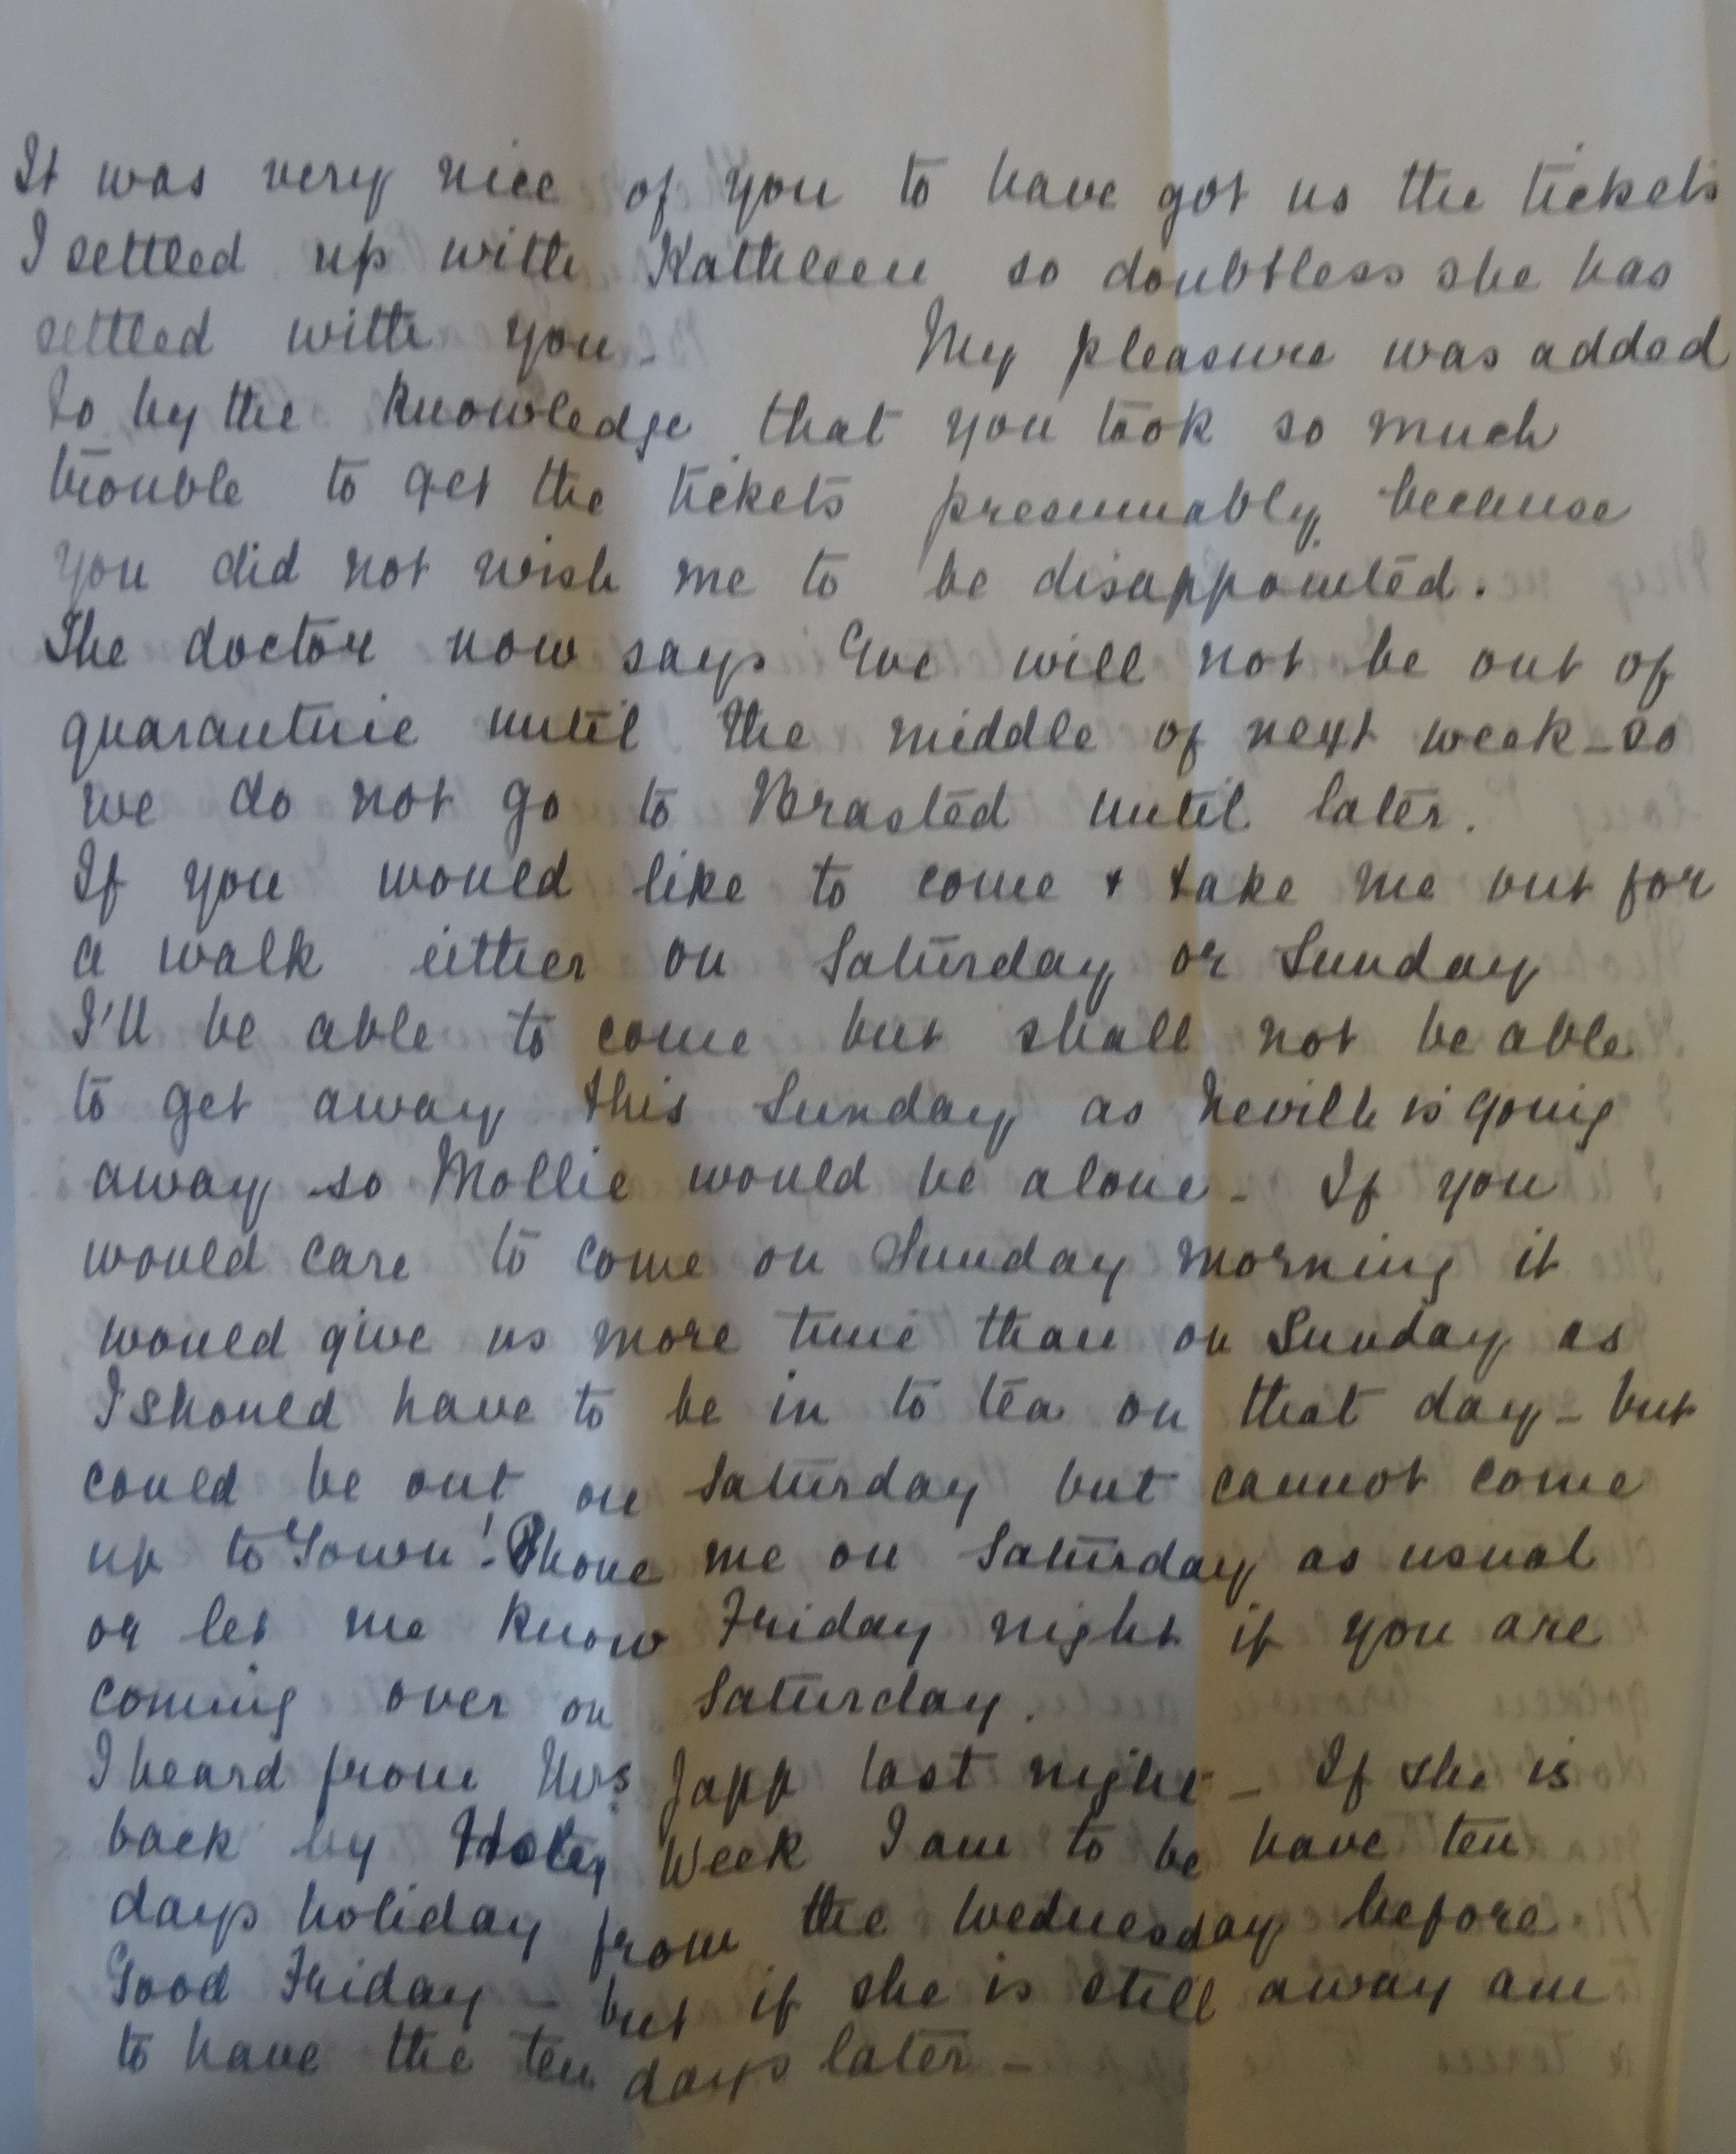 It was very nice of you to have got us the tickets
I settled up with Kathleen so doubtless she has
settled with you - My pleasure was added
to by the knowledge that you took so much
trouble to get the tickets presumably because
you did not wish me to be disappointed.
The doctor now says we will not be out of
quarantine until the middle of next week - so
we do not go to Brasted until later.
If you would like to come & take me out for
a walk either on Saturday or Sunday
I'll be able to come but shall not be able
to get away this Sunday as Neville is going
away so Mollie would be alone - If you
would care to come on Sunday morning it
would give us more time than on Sunday as
I should have to be in to tea on that day - but
could be out on Saturday but cannot come
up to Town! Phone me on Saturday as usual
or let me know Friday night if you are
coming over on Saturday.
I heard from Mrs Japp last night - If she is
back by Holy Week I am to be have ten
days holiday from the Wednesday before
Good Friday - but if she is still away am
to have the ten days later -